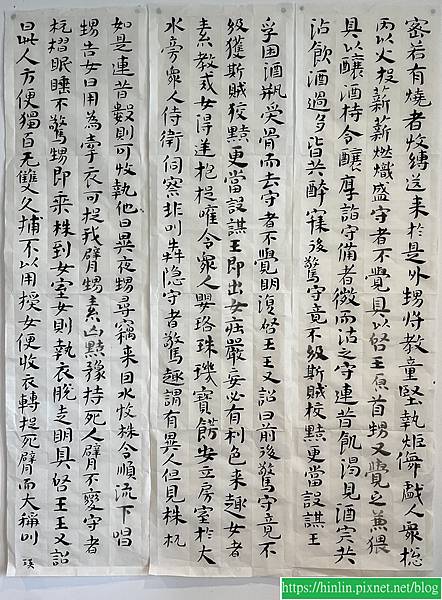 密若有燒者收縛送来於是外甥将教童竪執炬儛戲人衆総
丙以火投薪薪燃熾盛守者不覺具以啓王原首甥又覺之兼猥
具以釀酒持令釀厚詣守備者微而沽之守連昔飢渴見酒宗共
沾飲酒過多皆共醉寐後警守竟不级斯賊狡黠更當設謀王
孚囚酒瓶受骨而去守者不覺明復啓王王又詔曰前後警守竟不
级獲斯賊狡黠更當設謀王即出女莊嚴妄必有利色来趣女者
素教戒女得逆抱捉喚令衆人瓔珞珠璣寶餝安立房室於大
水旁衆人侍衛伺察非叫犇隐守者驚趣謂有異人但見株杌
如是連昔數則可收執他日異夜甥尋竊来因水放株令順流下唱
甥告女曰用為牽衣可捉我臂甥素凶黠豫持死人臂不變守者
杌摺眠睡不驚甥即乗株到女室女則執衣脱走明具啓王王又詔
曰此人方便獨百无雙久捕不以用授女便收衣轉捉死臂而大稱叫
瑛
https://hinlin.pixnet.net/blog